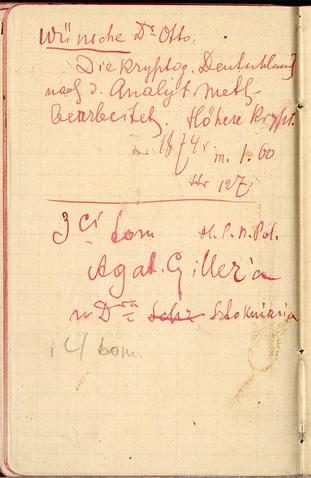 Wünsche Dr Otto.
Die Kryptog. Deutschland
nach d. Analyt. Meth-
bearbeitet. Höhere Krypt.
1874r m. 1.60
Nr 127.
3ci tom H. P. N. Pol.
Agat. Gillera
w Dra Schr Sztokmaria
i 4 tom.